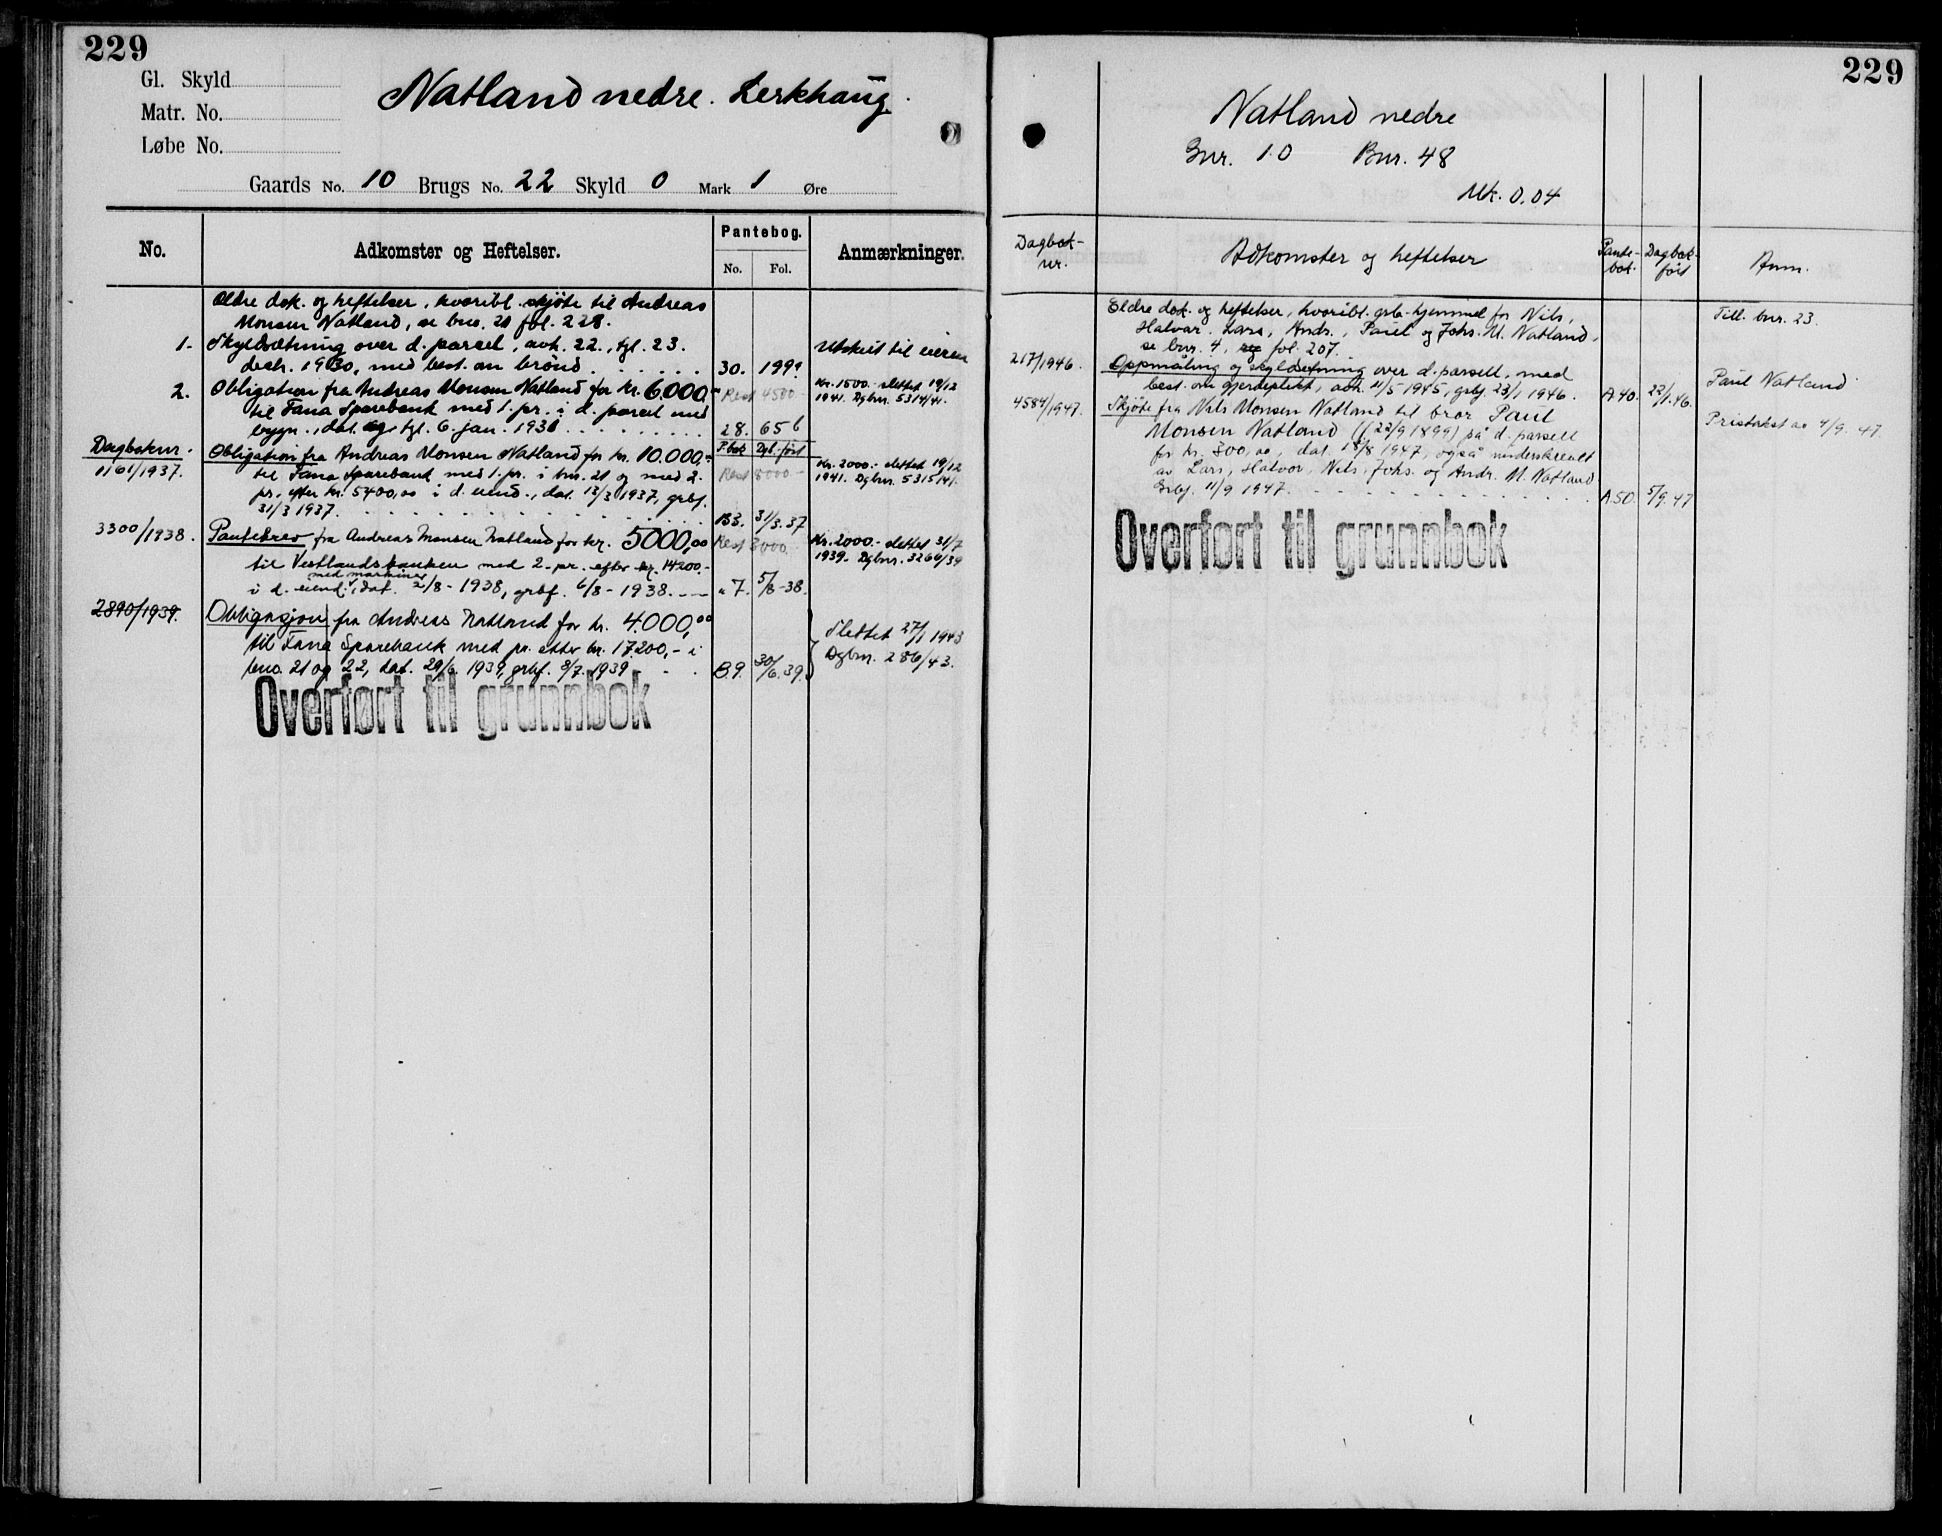 229
Gl. Skyld
Matr. No.
Løbe No.
Natland nedre. Lerkhaug.
Gaards No. 10 Brugs No. 22 Skyld 0 Mark 1 Øre
No.
Adkomster og Heftelser.
Pantebog.
No. Fol.
Anmærkninger.
Eldre dok. og heftelser, hvoribl. skjøte til Andreas
Monsen Natland, se bno. 21 fol. 228.
1. Skyldsetning over d. parcel, avh. 22., tgl. 23.
decbr. 1930, med best. om brønd . . . . . . 30. 199.
Utskilt til eieren
2. Obligation fra Andreas Monsen Natland for kr. 6.000,-
Rest 4500.-
til Fana Sparebank med 1. pr. i d. parcel med
bygn., dat. og tgl. 6. jan. 1931 . . . . . . . . . 28. 656
Kr. 1500.- slettet 19/12
1941. Dgbnr. 5314/41.
Dagboknr.
P.bok Dgl. ført
1161/1937.
Obligation fra Andreas Monsen Natland for kr. 10.000,-
Rest 8000.-
til Fana Sparebank med 1. pr. i bno. 21 og med 2.
pr. efter kr. 5400,00 i d. eiend., dat. 13/3 1937, grbf.
31/3 1937. . . . . . . . . . B3. 31/3.37
Kr. 2000.- slettet 19/12
1941. Dgbnr. 5315/41.
3300/1938.
Pantebrev fra Andreas Monsen Natland for kr. 5000,00
Rest 3000.
til Vestlandsbanken med 2. pr. efter kr. 14200.-
med maskiner
i d. eiend., dat. 2/8-1938, grbf. 6/8-1938. - - " 7. 5/8-38.
Kr. 2000.- slettet 31/7
1939. Dgbnr. 3264/39
2890/1939.
Obligasjon fra Andreas Natland for kr. 4.000,00
til Fana Sparebank med pr. etter kr. 17200,- i
bno. 21 og 22, dat. 29/6 1939, grbf. 8/7 1939 . . B9. 30/6.39.
Slettet 27/1 1943
Dgbnr. 286/43.
Overført til grunnbok
229
Natland nedre
Gnr. 10 Bnr. 48
Mk. 0.04
Dagbok-
nr.
Adkomster og heftelser
Pante-
bok.
Dagbok-
ført
Anm.
Eldre dok. og heftelser, hvoribl. grb. hjemmel for Nils,
Halvor, Lars, Andr., Paul og Johs. M. Natland,
se bnr. 4, fol. 207.
Till. bnr. 23.
217/1946.
Oppmåling og skyldsetning over d. parsell, med
best. om gjerdeplikt, avh. 11/5 1945, grbf. 23/1 1946. A.40. 22/1.46.
Paul Natland
4584/1947.
Skjøte fra Nils Monsen Natland til bror Paul
Monsen Natland (f. 22/9 1899) på d. parsell
for kr. 800,00, dat. 18/8 1947, også underskrevet
av Lars, Halvor, Nils, Johs. og Andr. M. Natland
Grbf. 11/9 1947. . . . . . . . . . A50. 5/9.47
Pristakst av 4/9.47
Overført til grunnbok